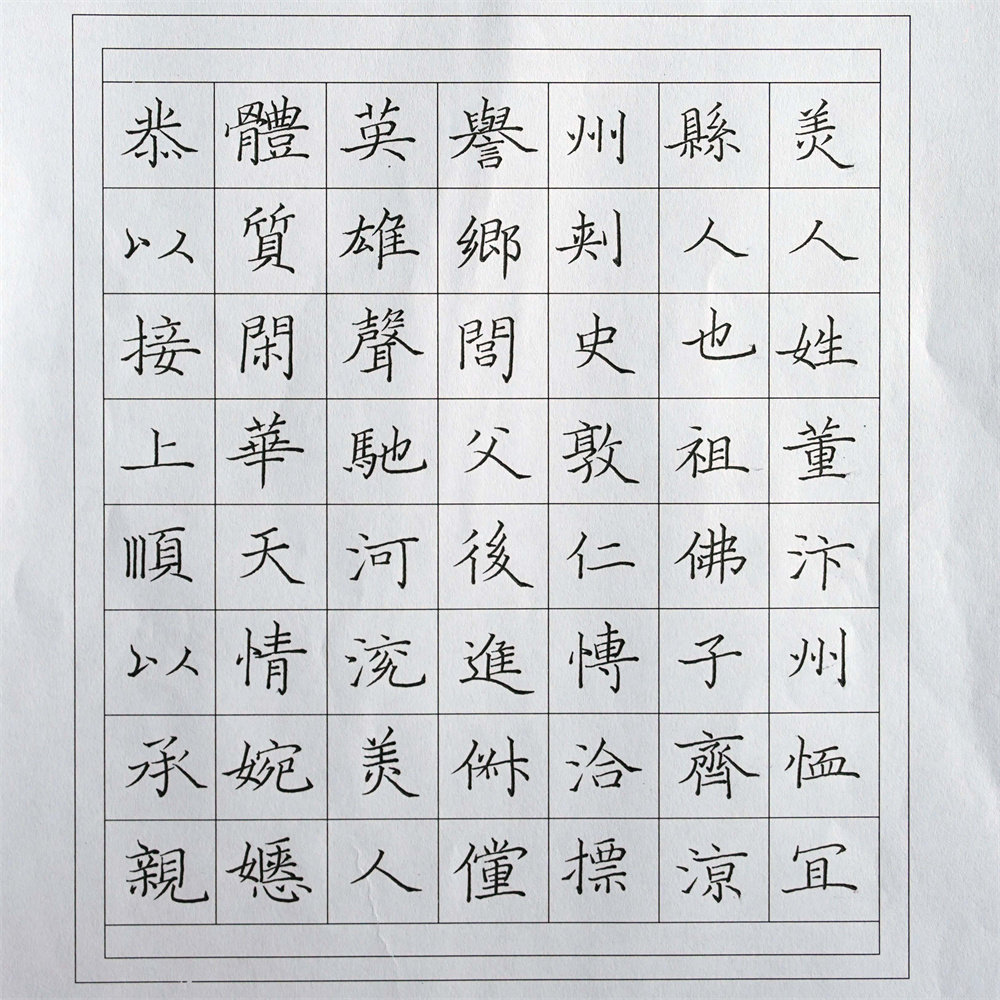 美人姓董汴州恤冝
縣人也祖佛子齊涼
州刾史敦仁博洽摽
譽鄉閭父後進俶儻
英雄聲馳河兖美人
體質閑華天情婉嫕
恭以接上順以承親